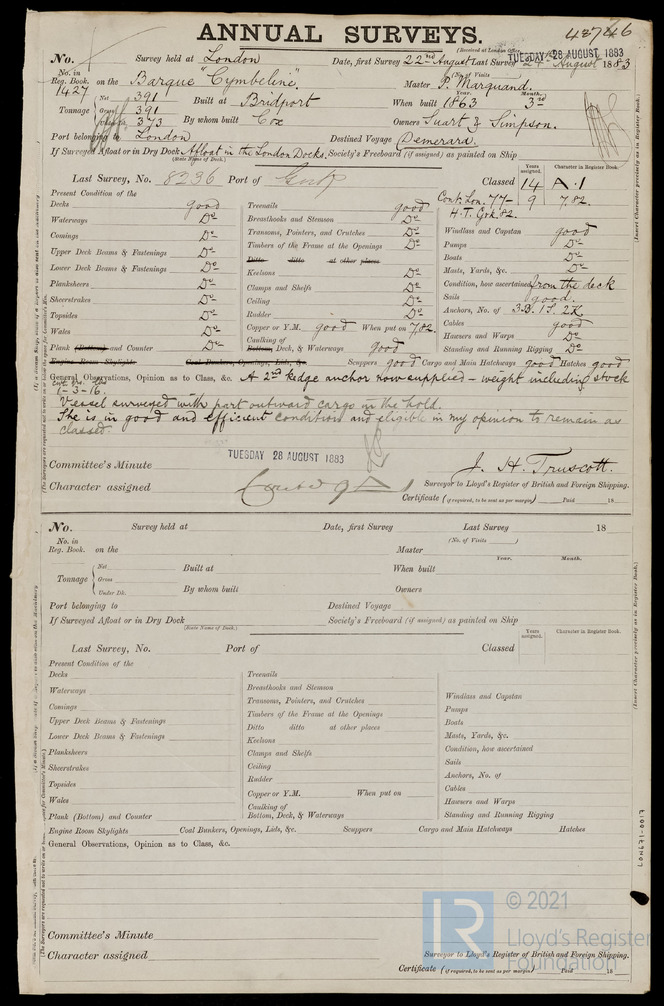 ANNUAL SURVEYS.
(Received at London Office
TUESDAY 28 AUGUST 1883
No. Survey held at London Date, first Survey 22nd August Last Survey August 1883
(No. of Visits
No. in Reg. Book. 1427 on the Barque "Cymbeline". Master P. Marquand.
Year. Month.
Tonnage Net 391 Built at Bridport When built 1863 3rd
Gross 391
Under Dk. 373 By whom built Cox Owners Simpson.
Port belonging to London Destined Voyage Demerara.
If Surveyed Afloat or in Dry Dock Afloat in the London Docks Society's Freeboard (if assigned) as painted on Ship
(State Name of Dock.)
Years assigned. Character in Register Book.
Last Survey, No. 8236 Port of Classed 14 A.1
Cont. Lon. 77- 9 7,82.
Present Condition of the
H.T. 82.
Decks good
Waterways Do
Comings Do
Upper Deck Beams & Fastenings Do
Lower Deck Beams & Fastenings Do
Planksheers Do
Sheerstrakes Do
Topsides Do
Wales Do
Plank (Bottom) and Counter Do
Treenails good
Breasthooks and Stemson Do
Transoms, Pointers, and Crutches Do
Timbers of the Frame at the Openings Do
Ditto ditto at other places
Keelsons Do
Clamps and Shelfs Do
Ceiling Do
Rudder Do
Copper or Y.M. good When put on 7,82.
Caulking of
Bottom, Deck, & Waterways good
Windlass and Capstan good
Pumps Do
Boats Do
Masts, Yards, &c. Do
Condition, how ascertained from the deck
Sails good.
Anchors, No. of 3.B. 1 S. 2K
Cables good
Hawsers and Warps Do
Standing and Running Rigging Do
Engine Room Skylights Coal Bunkers, Openings, Lids, &c. Scuppers good Cargo and Main Hatchways good Hatches good
General Observations, Opinion as to Class, &c. A 2nd kedge anchor now supplied - weight including stock
cwt. qrs. lbs
1-3-16.
Vessel surveyed with part outward cargo in the hold.
She is in good and efficient condition and eligible in my opinion to remain as
classed.
TUESDAY 28 AUGUST 1883
Committee's Minute J. H. Truscott.
Character assigned Contd 9 A 1 Surveyor to Lloyd's Register of British and Foreign Shipping.
Certificate (if required, to be sent as per margin) Paid 18
No. Survey held at Date, first Survey Last Survey 18
(No. of Visits )
No. in Reg. Book. on the Master
Year. Month.
Tonnage Net Built at When built
Gross
Under Dk. By whom built Owners
Port belonging to Destined Voyage
If Surveyed Afloat or in Dry Dock Society's Freeboard (if assigned) as painted on Ship
(State Name of Dock.)
Years assigned. Character in Register Book.
Last Survey, No. Port of Classed
Present Condition of the
Decks
Waterways
Comings
Upper Deck Beams & Fastenings
Lower Deck Beams & Fastenings
Planksheers
Sheerstrakes
Topsides
Wales
Plank (Bottom) and Counter
Treenails
Breasthooks and Stemson
Transoms, Pointers, and Crutches
Timbers of the Frame at the Openings
Ditto ditto at other places
Keelsons
Clamps and Shelfs
Ceiling
Rudder
Copper or Y.M. When put on
Caulking of
Bottom, Deck, & Waterways
Windlass and Capstan
Pumps
Boats
Masts, Yards, &c.
Condition, how ascertained
Sails
Anchors, No. of
Cables
Hawsers and Warps
Standing and Running Rigging
Engine Room Skylights Coal Bunkers, Openings, Lids, &c. Scuppers Cargo and Main Hatchways Hatches
General Observations, Opinion as to Class, &c.
Committee's Minute
Character assigned Surveyor to Lloyd's Register of British and Foreign Shipping.
Certificate (if required, to be sent as per margin) Paid 18
(Insert Character precisely as in Register Book.)
(Insert Character precisely as in Register Book.)
LON671-0017
© 2021
Lloyd's Register
Foundation